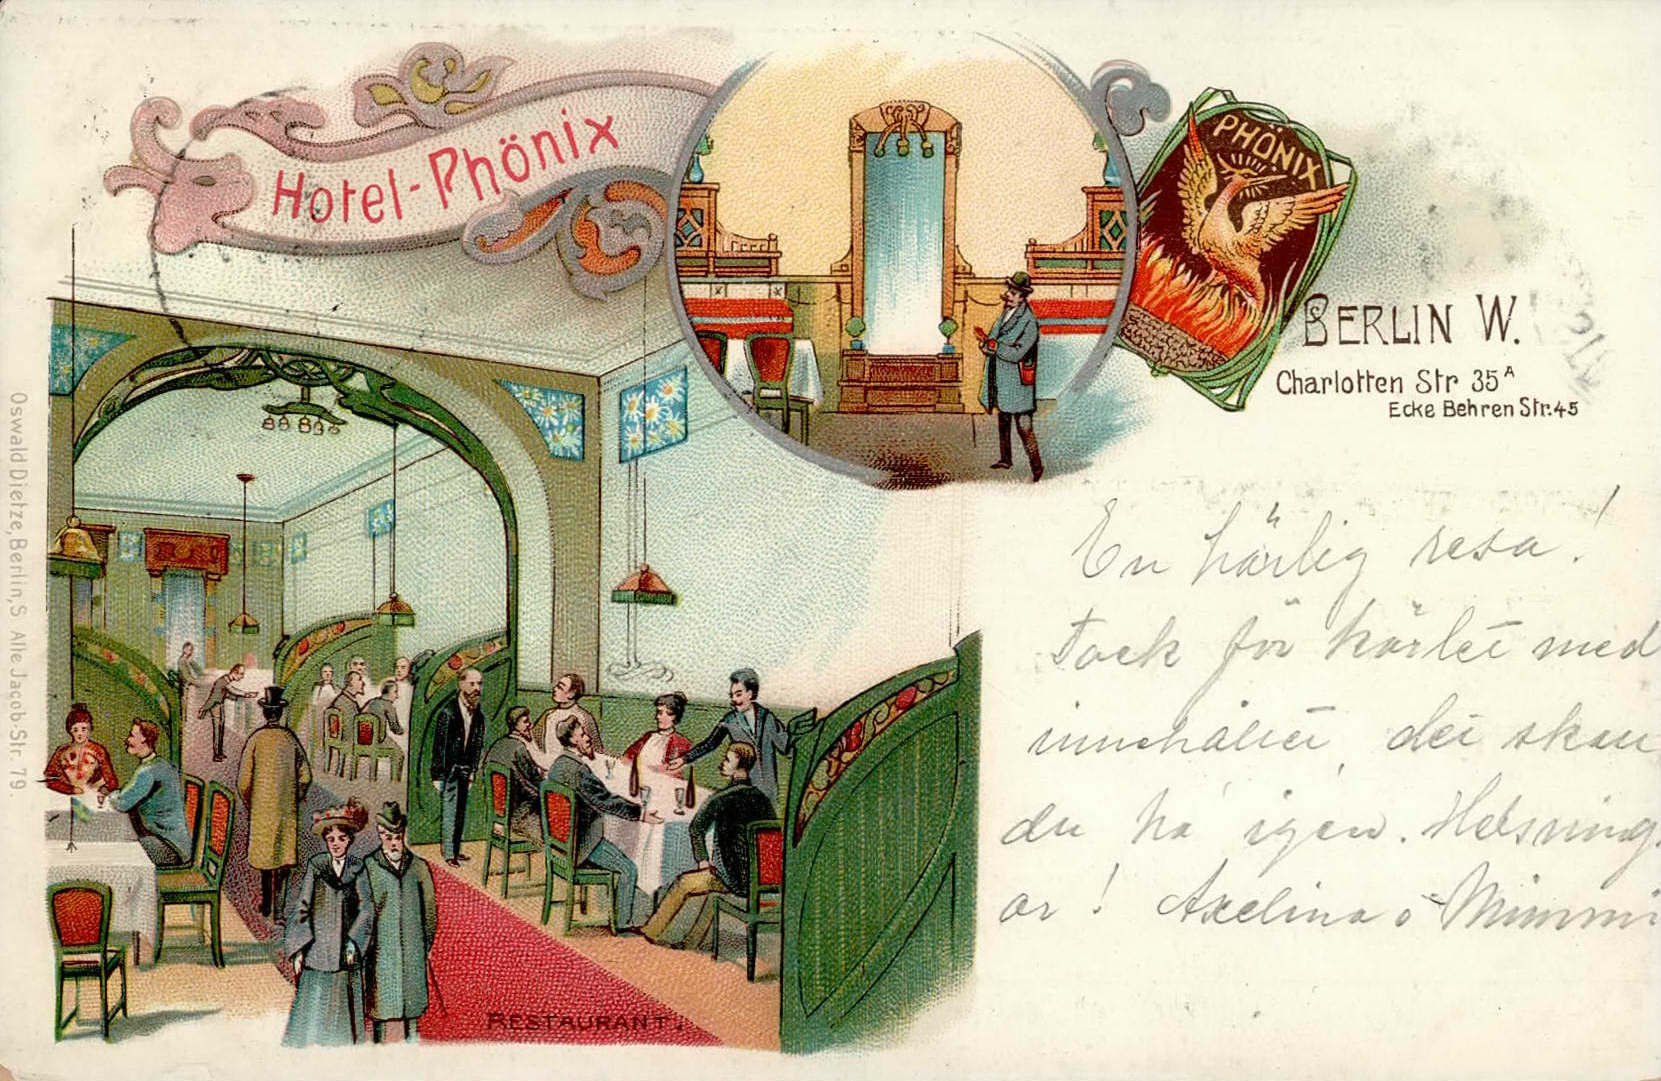 Hotel-Phönix
PHÖNIX
BERLIN W.
Charlotten Str 35A
Ecke Behren Str. 45
Oswald Dietze, Berlin, S Alte Jacob-Str. 79.
RESTAURANT.
En härlig resa!
Tack för kortet med
innehållet det skall
du ha igen. Helsning
ar! Axelina o Mimmi